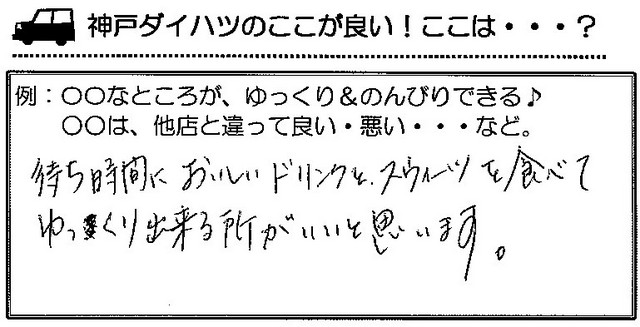 神戸ダイハツのここが良い！ここは・・・？
例：〇〇なところが、ゆっくり＆のんびりできる♪
〇〇は、他店と違って良い・悪い・・・など。
待ち時間においしいドリンクと、スウィーツを食べて
ゆっくり出来る所がいいと思います。